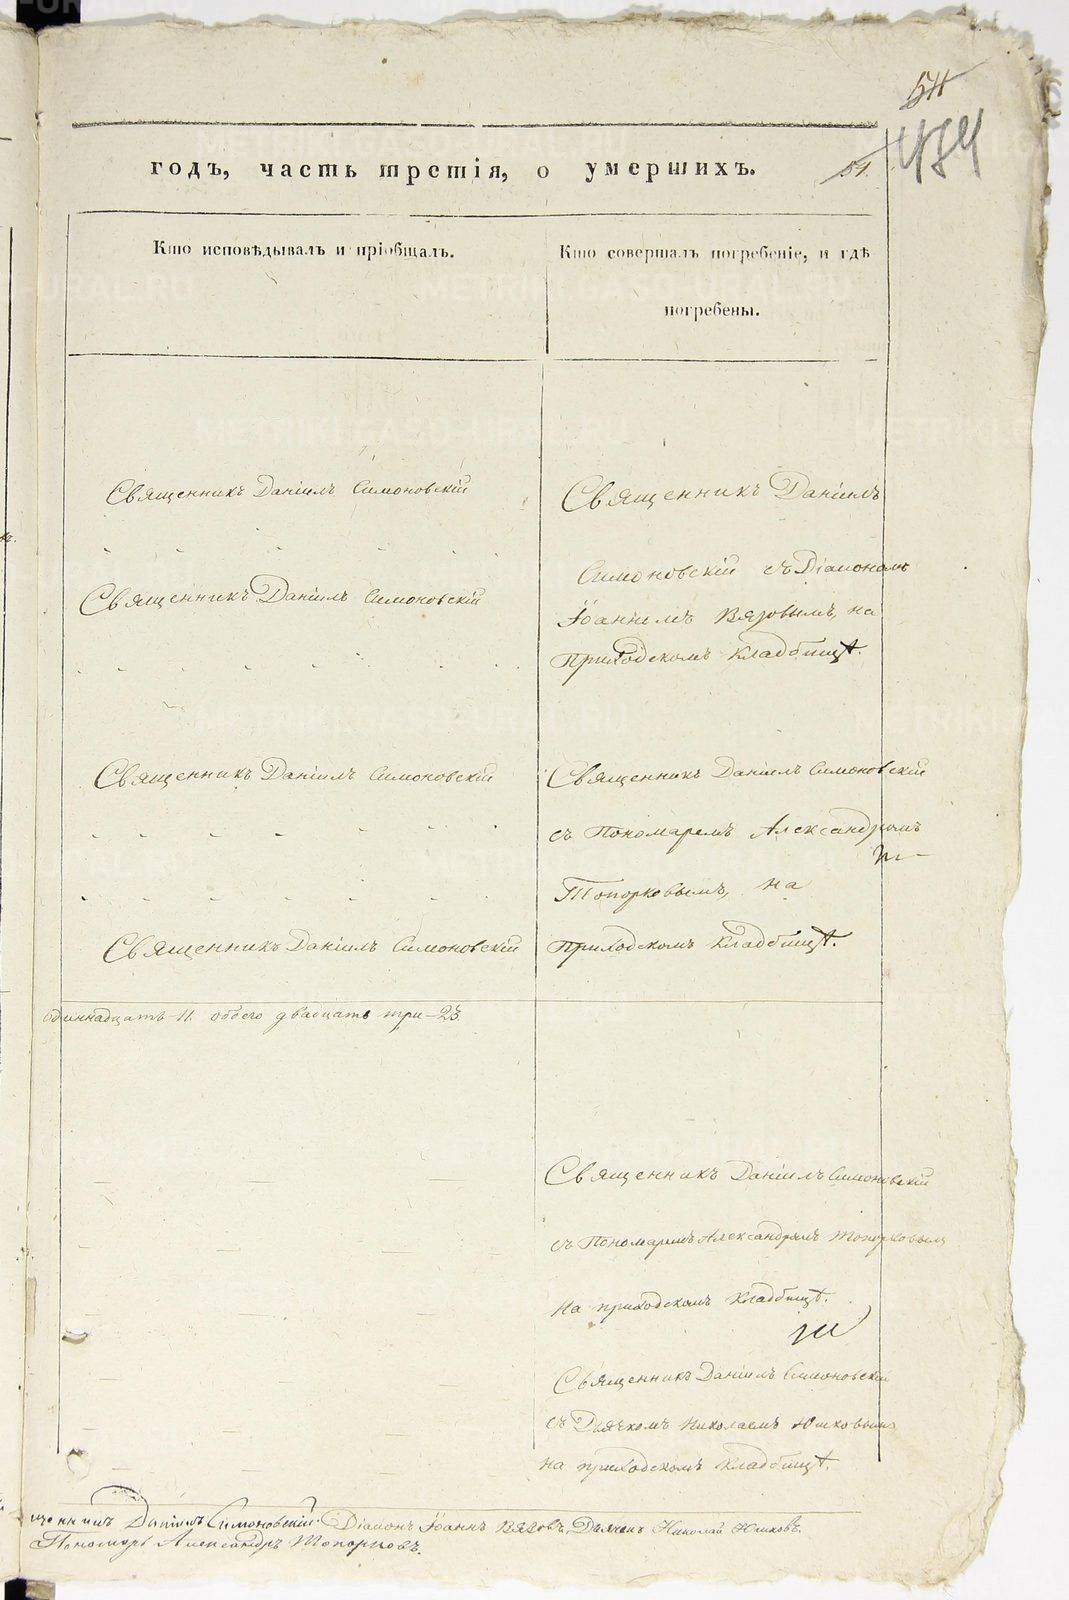 54
484
годъ, часть третія, о умершихъ.
54.
Кто исповѣдывалъ и пріобщалъ.
Кто совершалъ погребеніе, и гдѣ
погребены.
Священникъ Даніилъ Симоновскій
Священникъ Даніилъ Симоновскій
Священникъ Даніилъ Симоновскій
Священникъ Даніилъ Симоновскій
Священникъ Даніилъ
Симоновскій съ Діакономъ
Іоанномъ Вязовымъ, на
Приходскомъ кладбищѣ.
Священникъ Даніилъ Симоновскій
съ Пономаремъ Александромъ
Топорковымъ, на
приходскомъ кладбищѣ.
одиннадцать 11. обоего двадцать три – 23.
Священникъ Даніилъ Симоновскій
съ Пономаремъ Александромъ Топорковымъ
на приходскомъ кладбищѣ.
Священникъ Даніилъ Симоновскій
съ Дьячкомъ Николаемъ Юшковымъ
на приходскомъ кладбищѣ.
щенникъ Даніилъ Симоновскій. Діаконъ Іоаннъ Вязовъ, Дьячекъ Николай Юшковъ.
Пономарь Александръ Топорковъ.
METRIKI.GASO-URAL.RU